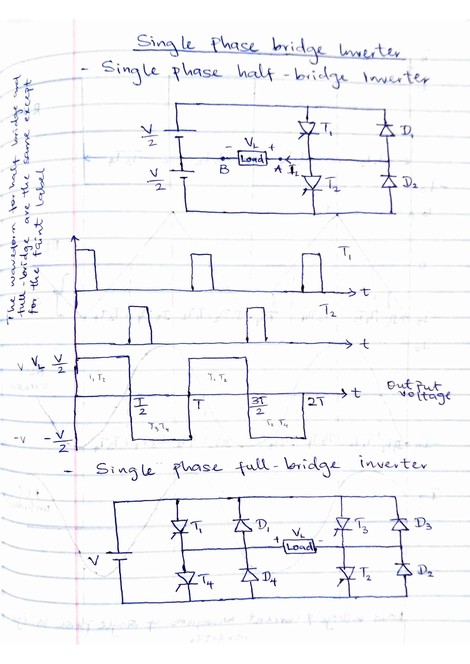 Single phase bridge Inverter
- Single phase half-bridge Inverter
The waveform for half bridge and
full-bridge are the same except
for the faint label
V/2
V/2
- VL +
Load
B
A
IL
T1
D1
T2
D2
T1
t
T2
t
V VL V/2
T1, T2
T1, T2
t
output
voltage
T/2
T
3T/2
2T
T3 T4
T3 T4
-V -V/2
- Single phase full-bridge inverter
V
T1
D1
+ VL -
Load
T3
D3
T4
D4
T2
D2